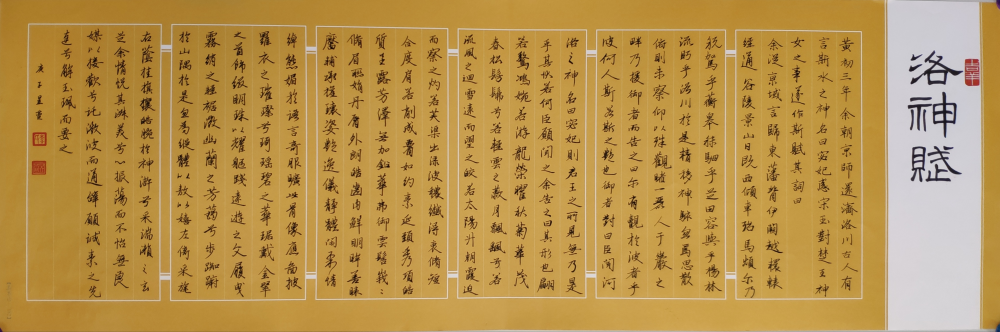 洛神賦
黄初三年余朝京師還濟洛川古人有
言斯水之神名曰宓妃感宋玉對楚王神
女之事遂作斯賦其詞曰
余從京域言歸東藩背伊闕越轘轅
經通谷陵景山日既西傾車殆馬煩尔乃
税駕乎蘅皋秣駟乎芝田容與乎楊林
流眄乎洛川於是精移神駭忽焉思散
俯則未察仰以殊觀睹一麗人于巖之
畔乃援御者而告之曰尔有覿於波者乎
波何人斯若斯之艷也御者對曰臣聞河
洛之神名曰宓妃則君王之所見無乃是
乎其狀若何臣願聞之余告之曰其形也翩
若驚鴻婉若游龍榮曜秋菊華茂
春松髣髴兮若輕雲之蔽月飄飖兮若
流風之迴雪遠而望之皎若太陽升朝霞迫
而察之灼若芙蕖出淥波穠纖得衷脩短
合度肩若削成腰如約素延頸秀項皓
質呈露芳澤無加鉛華弗御雲髻峩峩
脩眉聯娟丹唇外朗皓齒内鮮明眸善睞
靨輔承權瓌姿艷逸儀靜體閑柔情
綽態媚於語言奇服曠世骨像應圖披
羅衣之璀璨兮珥瑶碧之華琚戴金翠
之首飾綴明珠以耀軀踐遠遊之文履曳
霧綃之輕裾微幽蘭之芳藹兮步踟躕
於山隅於是忽焉縱體以敖以嬉左倚采旄
右蔭桂旗攘皓腕於神滸兮采湍瀨之玄
芝余情悦其淑美兮心振蕩而不怡無良
媒以接歡兮託微波而通辭願誠素之先
達兮解玉珮而要之
庚子